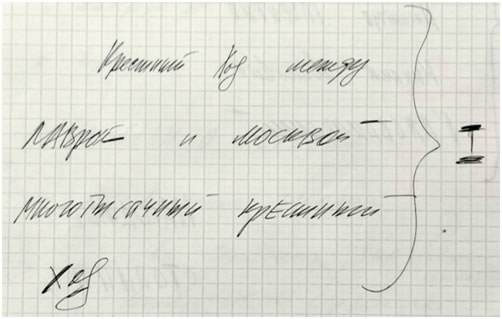 Крестный Ход между
Лаврой и Москвой
многотысячный крестный
ход
I